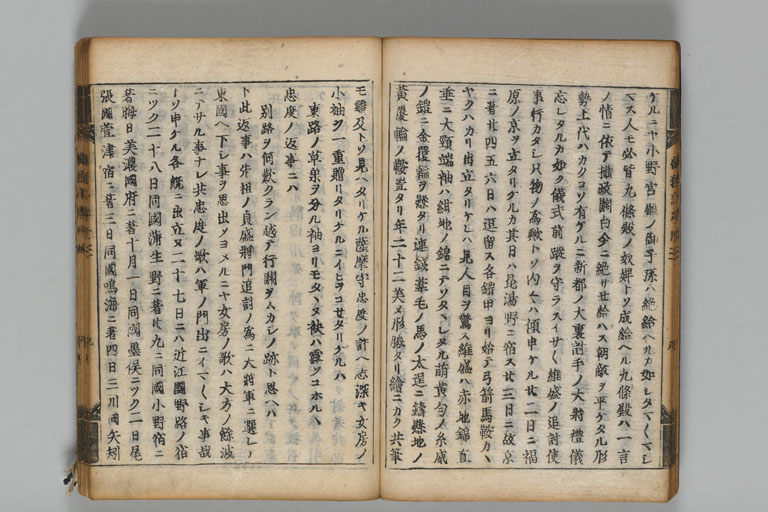 ケルニヤ小野宮殿ノ御子孫ハ絶給ヘルカ如シタマ〳〵マシ
マス人モ必皆九條殿ノ奴婢トソ成給ヘル九條殿ハ一言
ノ情ニ依テ摂政関白今ニ絶サセ給ハス朝敵ヲ平ケタル形
勢上代ハカクコソ有ケルニ新都ノ大裏討手ノ大将禮儀
忘レタルカ如ク儀式前蹤ヲ守ラスイサ〳〵維盛ノ追討使
事行カタシ只物ノ為歟トソ内々ハ傾申ケル廿二日ニ福
原ノ京ヲ立タリケルカ其日ハ昆陽野ニ宿ス廿三日ニ故京
ニ著廿四五六日ハ逗留ス各鎧甲ヨリ始テ弓箭馬鞍カヽ
ヤクハカリ出立タリケレハ見人目ヲ驚ス維盛ハ赤地錦直
垂ニ大頸端袖ハ紺地ノ錦ニテソタヽレタル萌黄匂ノ糸威
ノ鎧ニ金覆輪ヲ懸タリ連銭葦毛ノ馬ノ太逞ニ鋳懸地ノ
黄覆輪ノ鞍置タリ年二十二美メ形勝タリ繪ニカク共筆
モ難及トソ見ヘタリケル薩摩守忠度ノ許ヘ志深キ女房ノ
小袖ヲ一重贈リタリケルニイヒヲコセタリケルハ
東路ノ草葉ヲ分ル袖ヨリモタヽヌ袂ハ露ソコホルヽ
忠度ノ返事ニハ
別路ヲ何歎クラン越テ行関ヲムカシノ跡ト思ヘハ
ト此返事ハ先祖ノ貞盛将門追討ノ為ニ大将軍ニ選レテ
東國ヘ下シ事ヲ思出ソヨメルニヤ女房ノ歌ハ大方ノ餘波
ニテサル事ナレ共忠度ノ歌ハ軍ノ門出ニイマ〳〵シキ事哉
トソ申ケル各既ニ出立又二十七日ニハ近江國野路ノ宿
ニツク二十八日同國蒲生野ニ著廿九ニ同國小野宿ニ
著晦日美濃國府ニ著十月一日同國墨俣ニツク二日尾
張國萱津宿ニ著三日同國鳴海ニ著四日三川國矢矧